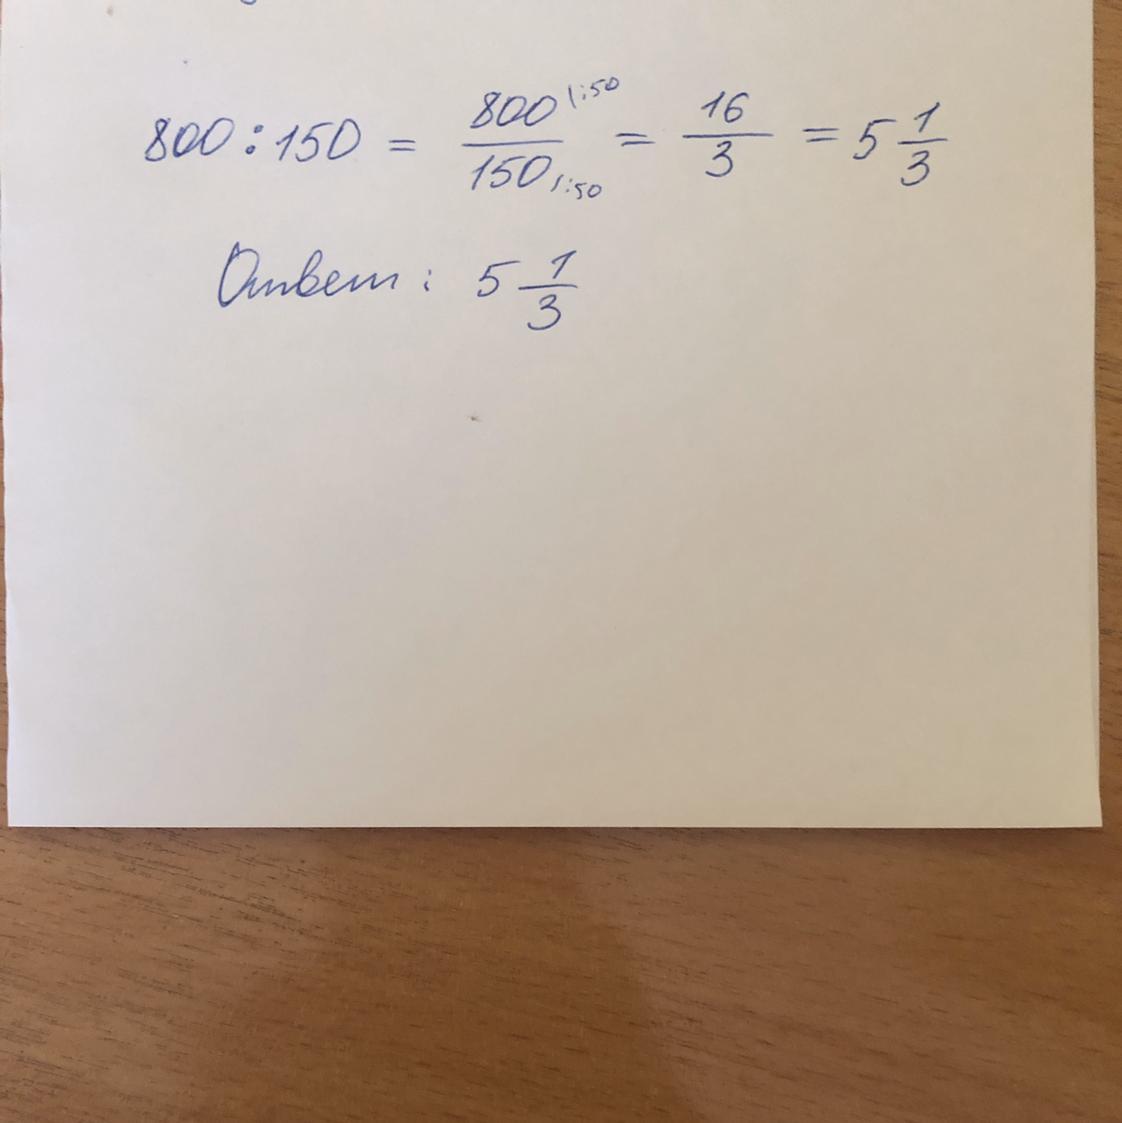 800 : 150 = 800/150 |:50 |:50 = 16/3 = 5 1/3
Ответ: 5 1/3